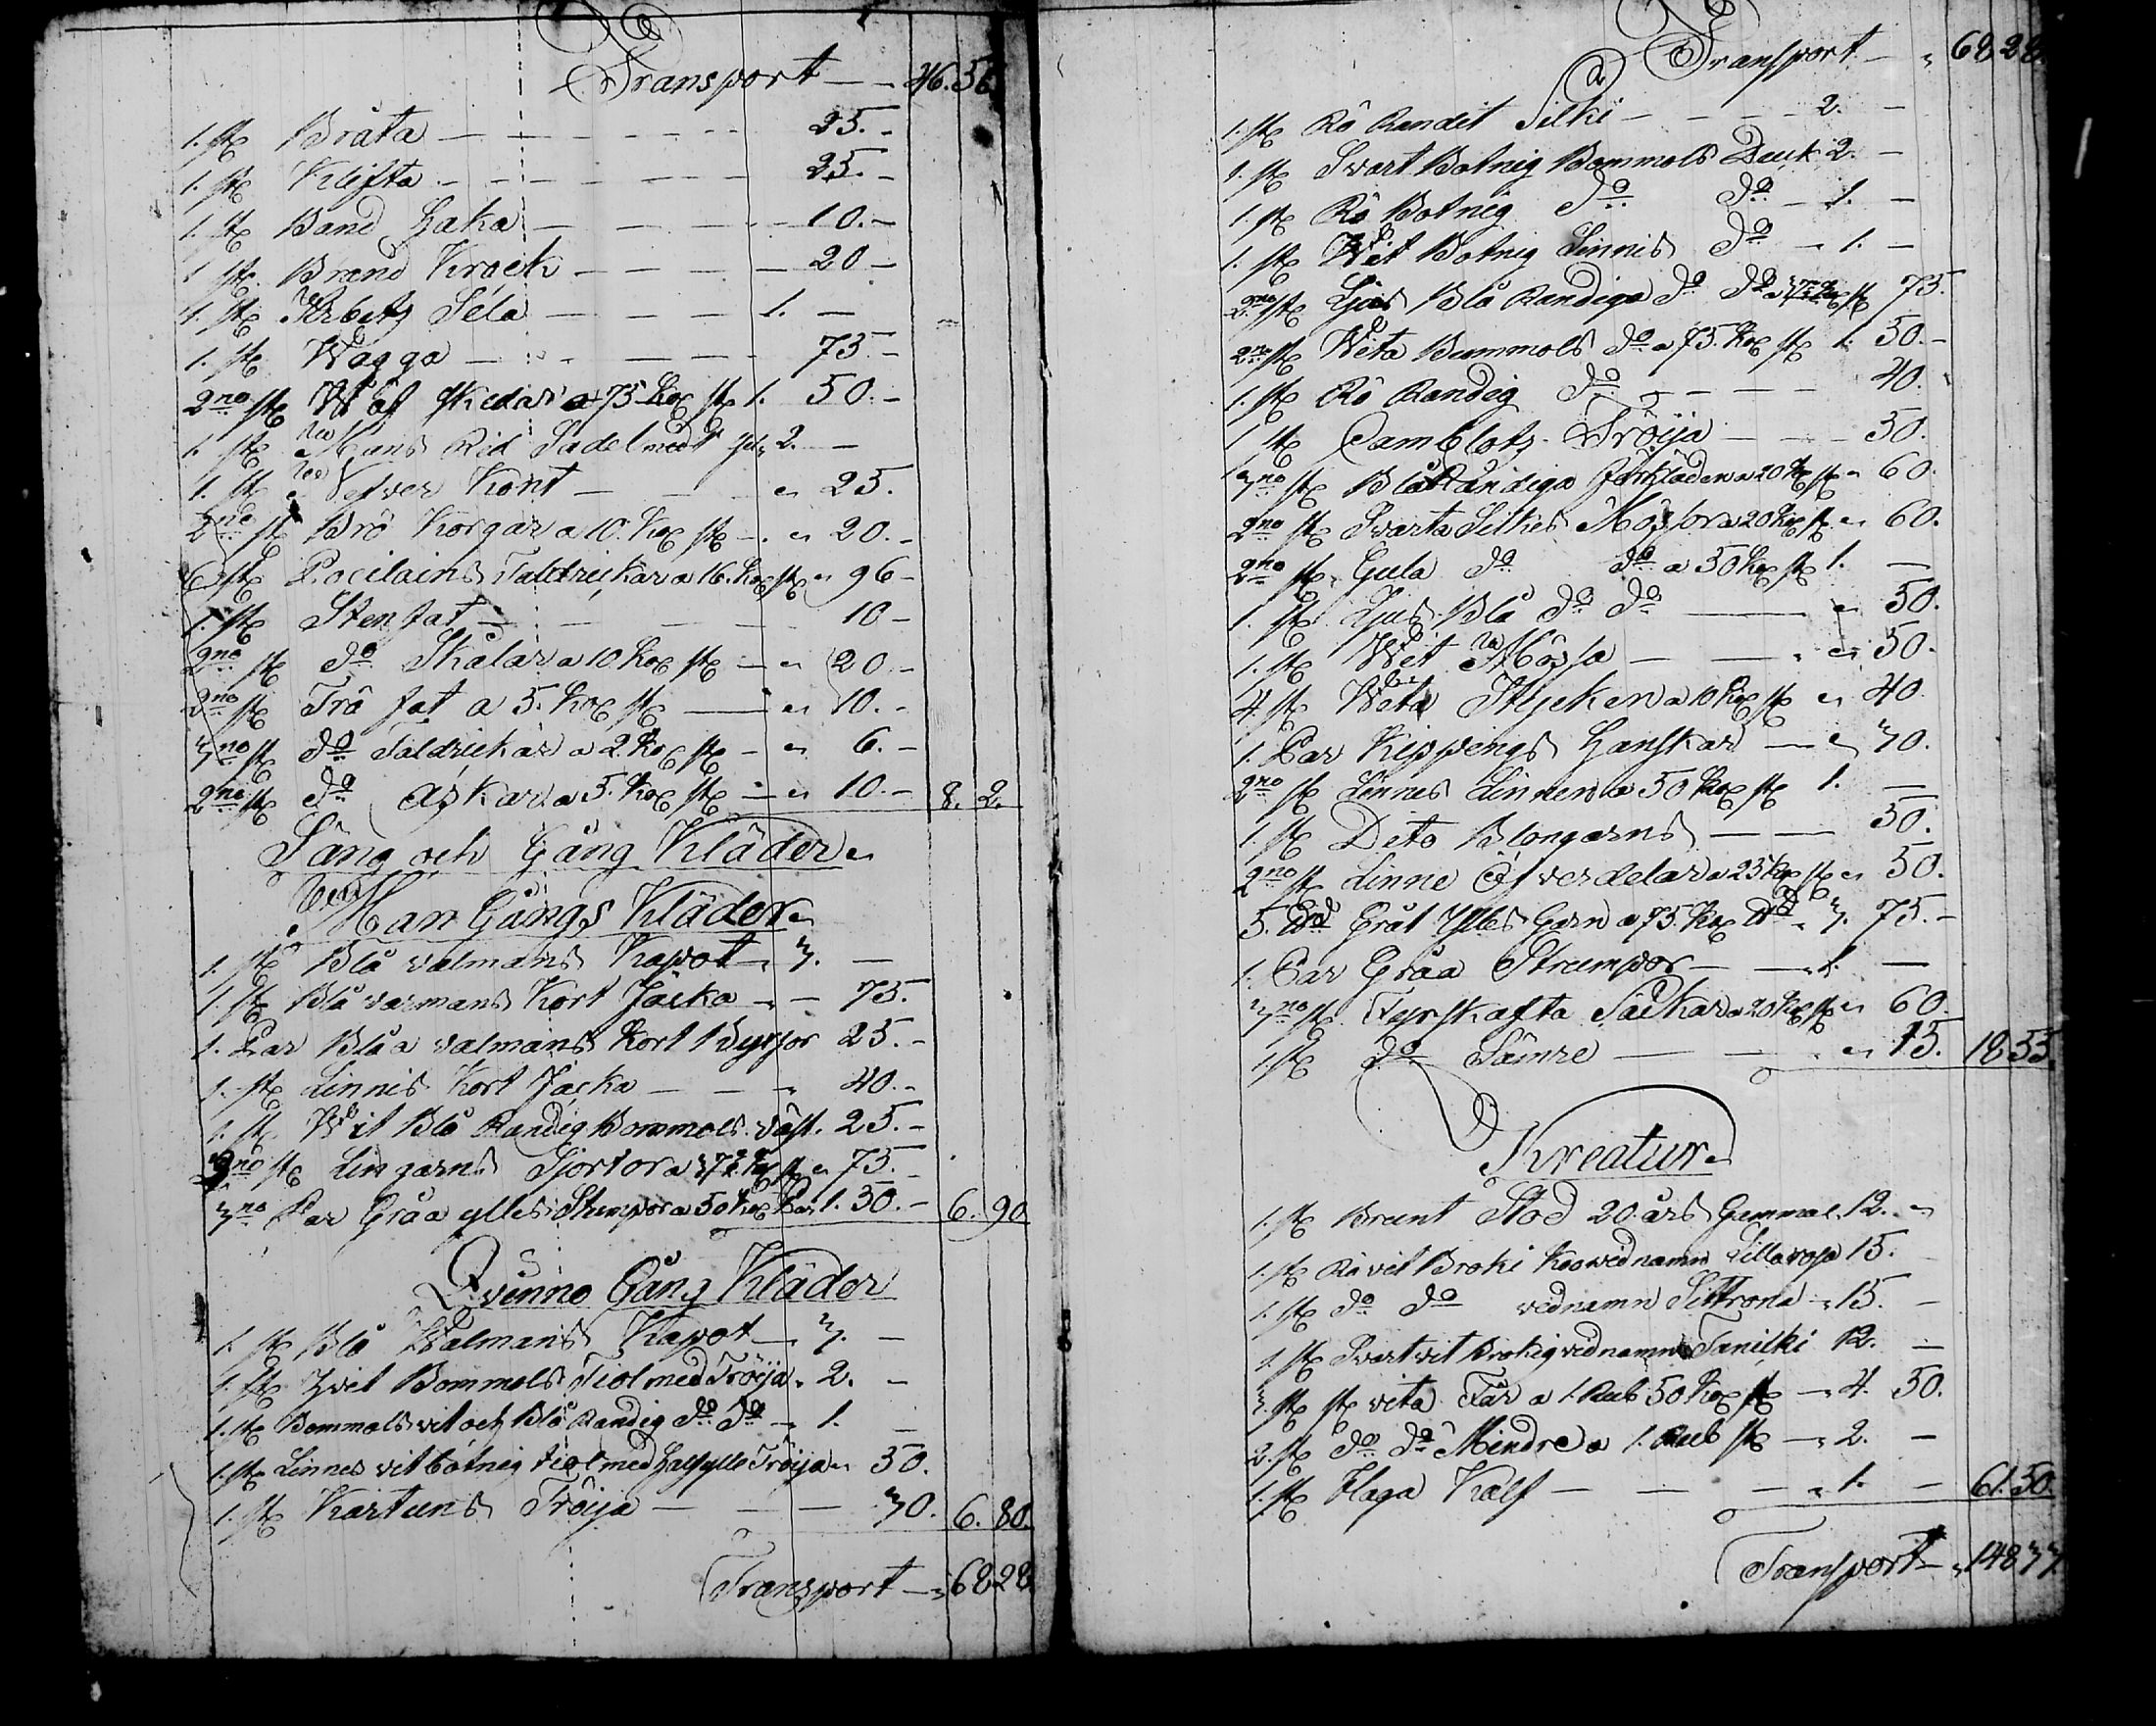 Transport — — 46.56.
1. st Bråta — 25. -
1. st Klifta — 25. -
1. st Band Haka — 10. -
1 st Brand Krock — 20 -
1. st Arbetz Sela — 1. —
1. st Wagga — 73 -
2no st Wäf skedar a 75 Kop st 1. 50. -
1. st Mans Rid Sadel med 2. —
1. st Ketver Kont — " 25.
2no st Brö Korgar a 10. Kop st — " 20. -
6 st Pocilains Taldrickar a 16. Kop st " 96 -
1. st Stenfat — 10 -
2no st do Skålar a 10 Kop st — " 20 -
2no st Trö fat a 5. Kop st — " 10. -
3no st do Taldrickar a 2. Kop st — " 6. -
2no st do Askar a 5. Kop st — " 10. - 8. 2.
Säng och Gång Kläder
Man Gångs Kläder
1. st Blå valmans Kapot — 3. —
1. st Blå varmans Kort Jacka — 75.
1. Par Blåa valmans Kort Byxor 25. -
1. st Linnis Kort Jacka — 40. -
1. st Wit Blå Randig Bommols väst. 25. -
st Lingarns Sjortor a Kop st " 75. -
3no Par Gråa ylles Strumpor a 50 Kop Par 1. 50. - 6. 90
Qvinno Gång Kläder
1. st Blå Walmans Kapot — 3. —
1. st Hvit Bommols Tiol med Tröija. 2. —
1. st Bommols vit och Blå Randig do do — 1. —
1. st Linnes vit botnig tiol med halfylle Tröija " 50.
1. st Kartuns Tröija — 30. 6. 80.
Transport — 68.28
Transport — " 68 28.
1. st Rö Randit Silki — 2. —
1. st Svart Botnig Bommols Duk 2. —
1. st Rö Botnig do do — 1. —
1. st Wit Botnig Linnis do — 1. —
2no st Ljus Blå Randiga do do a st 75.
2no st Wita Bummols do a 75. Kop st 1. 50. -
1. st Rö Randig do — 40.
1 st Camblotz Tröija — 50.
3no st Blå Randiga förkläden a 20 Kop st " 60.
2no st Svarta Silkes Mössor a Kop st " 60.
2no st Gula do do a 50 Kop st 1. —
1. st Ljus Blå do do — " 50.
1. st Wit Mössa — " 50.
4. st Wita Stycken a 10 Kop st " 40
1. Par Kippengs Hanskar — " 30.
2no st Linnes Linnen a 50 Kop st 1. —
1. st Deto Blongarns — 50.
2no st Linne Öfverdelar a 25 Kop st " 50.
5. Gråt Ylles Garn a 75. Kop 3. 75. -
1. Par Gråa Strumpor — 1. —
3no st Fyrskafta Säckar a 20 Kop st " 60.
1. st do Sämre — " 15. 18 55.
Kreatur
1. st Brunt Stod 20 års Gammal. 12. "
1. st Rö vit Broki Koo vid namn Lillarosa 15.
1. st do do vid namn Sittrona " 15. —
1. st Svart vit Brokig vid namn Tanilki 12. —
3. st st vita Får a 1. Rub 50 Kop st — " 4. 50.
2. st do do Mindre a 1. Rub st — " 2. —
1. st Haga Kalf — " 1. — 61.50.
Transport — " 148 33